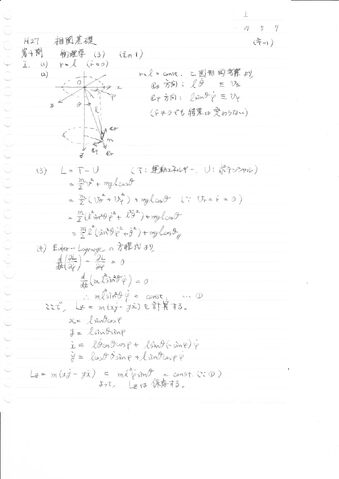 H27 相関基礎
第4期 物理学 (3) (その1) (その1)
I. (1) r = l (ṙ = 0)
(2) r = l = const. と図形的考察より
e_θ 方向 : lθ̇ ≡ v_θ
e_φ 方向 : l sinθ φ̇ ≡ v_φ
(3) L = T − U (T : 運動エネルギー, U : ポテンシャル)
= m/2 v² + mgl cosθ
= m/2 (v_θ² + v_φ²) + mgl cosθ (∵ v_r = ṙ = 0)
= m/2 (l² sin²θ φ̇² + l²θ̇²) + mgl cosθ
= m/2 l² (sin²θ φ̇² + θ̇²) + mgl cosθ
(4) Euler-Lagrange の方程式より
d/dt (∂L/∂φ̇) − ∂L/∂φ = 0
d/dt (ml² sin²θ φ̇) = 0
∴ ml² sin²θ φ̇ = const. … ①
ここで, L_z = m(xẏ − yẋ) を計算する.
x = l sinθ cosφ
y = l sinθ sinφ
ẋ = lθ̇ cosθ cosφ + l sinθ (−sinφ) φ̇
ẏ = lθ̇ cosθ sinφ + l sinθ cosφ φ̇
L_z = m(xẏ − yẋ) = ml² φ̇ sin²θ = const. (∵ ①)
よって, L_z は保存する.